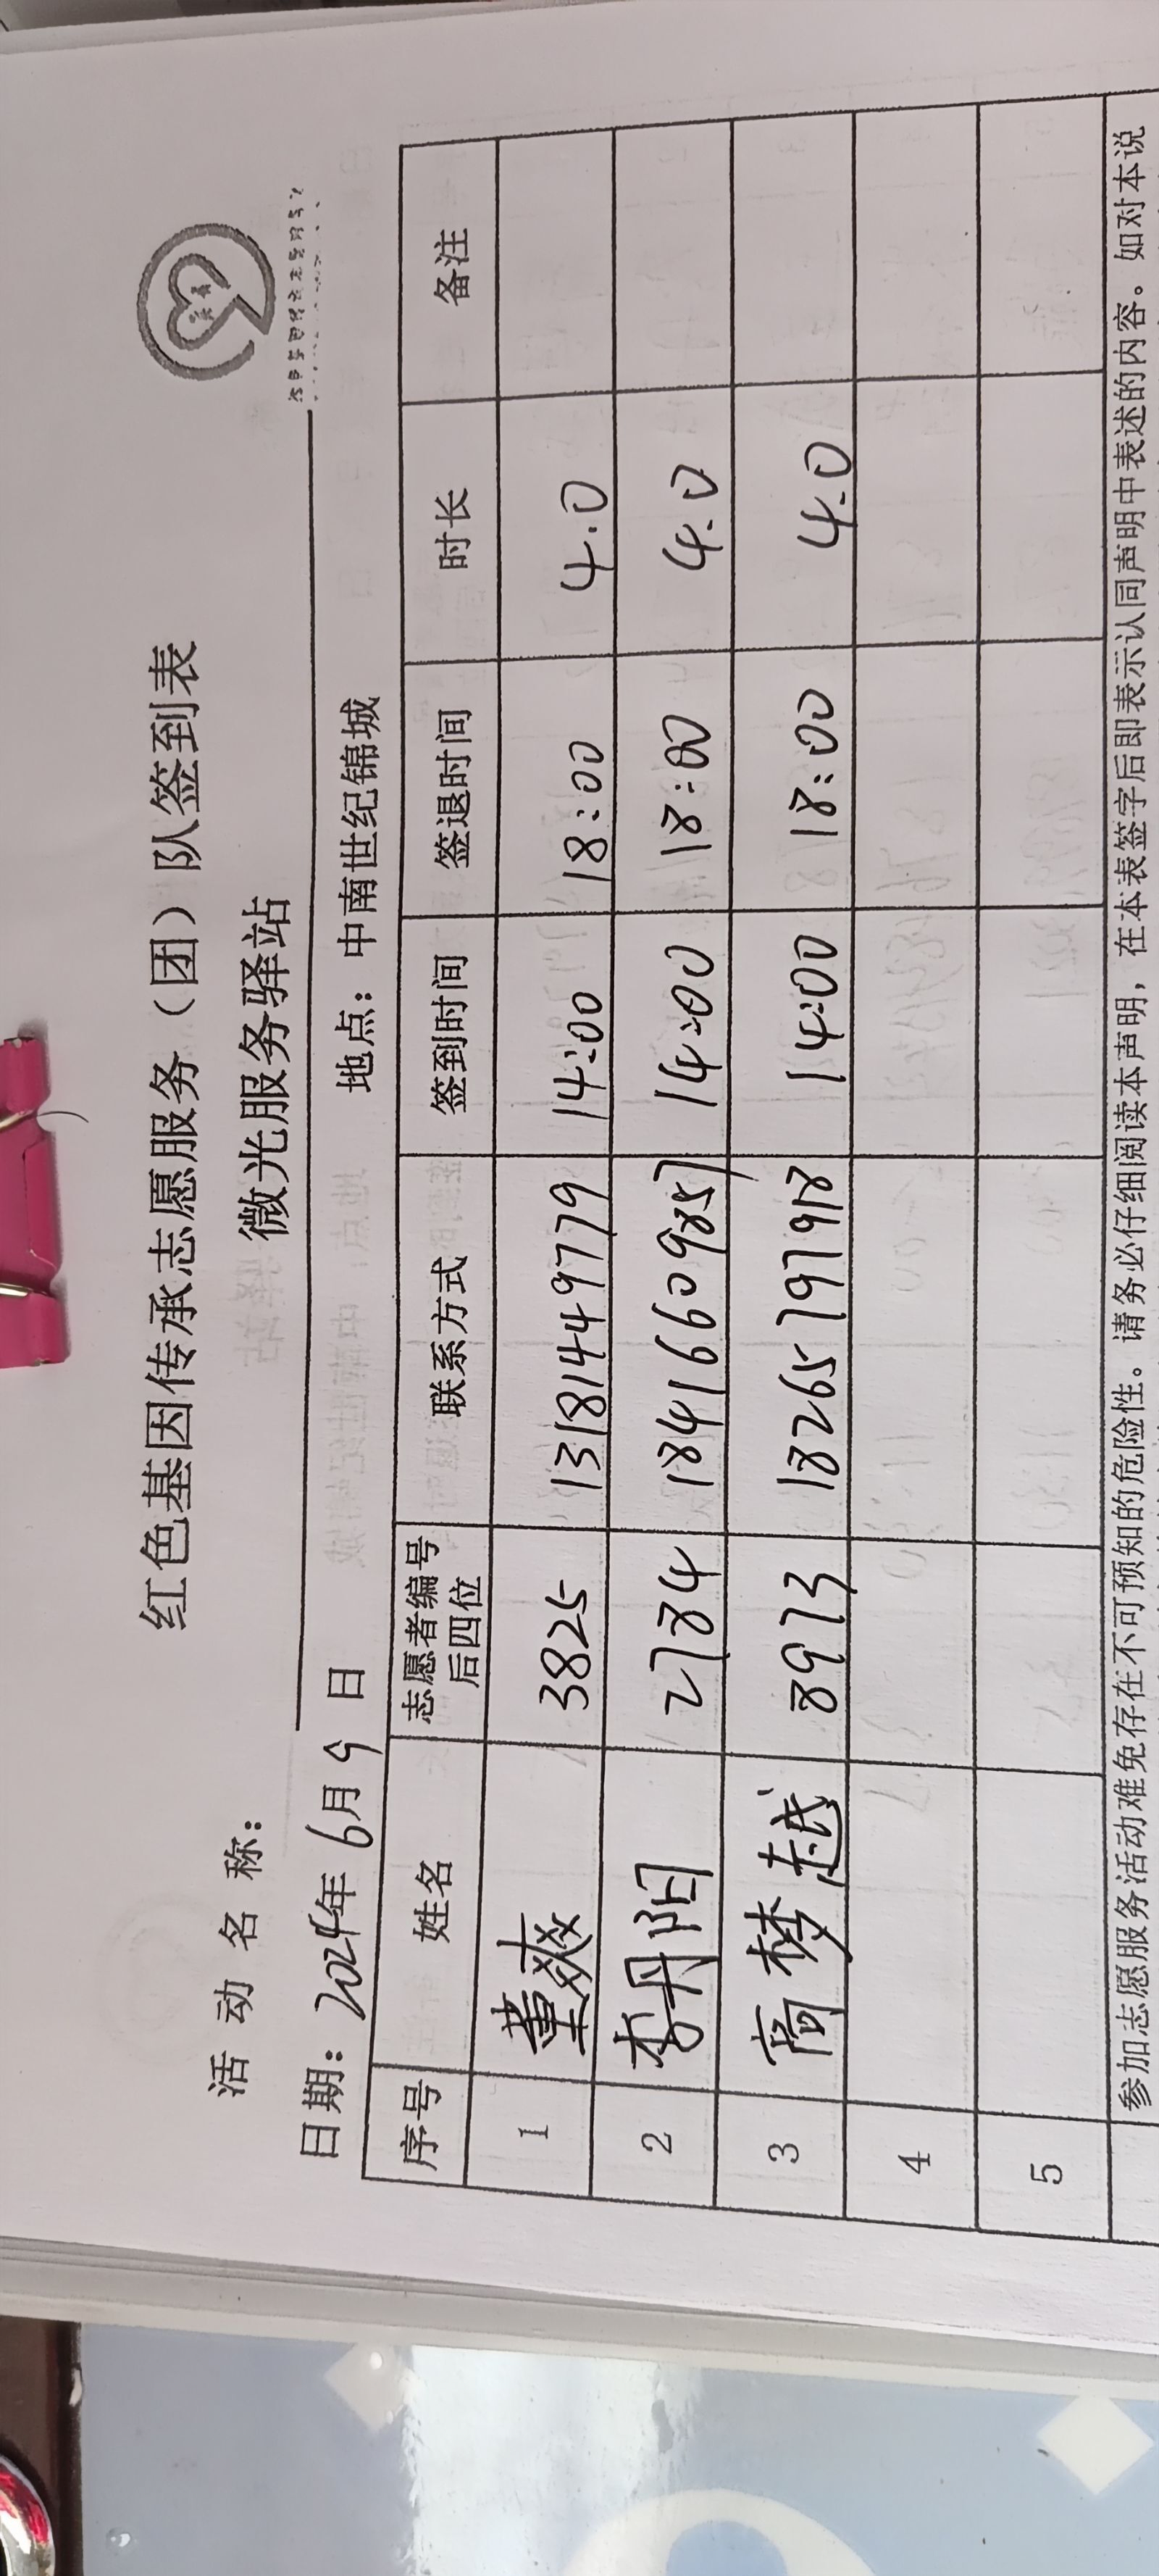 红色基因传承志愿服务（团）队签到表
活 动 名 称： 微光服务驿站
日期：2024年 6月 9 日 地点：中南世纪锦城
序号 姓名 志愿者编号后四位 联系方式 签到时间 签退时间 时长 备注
1 董爽 3825 13181449779 14:00 18:00 4.0
2 李丹阳 2784 18416609857 14:00 18:00 4.0
3 高梦越 8973 18265797918 14:00 18:00 4.0
4
5
参加志愿服务活动难免存在不可预知的危险性。请务必仔细阅读本声明，在本表签字后即表示认同声明中表述的内容。如对本说